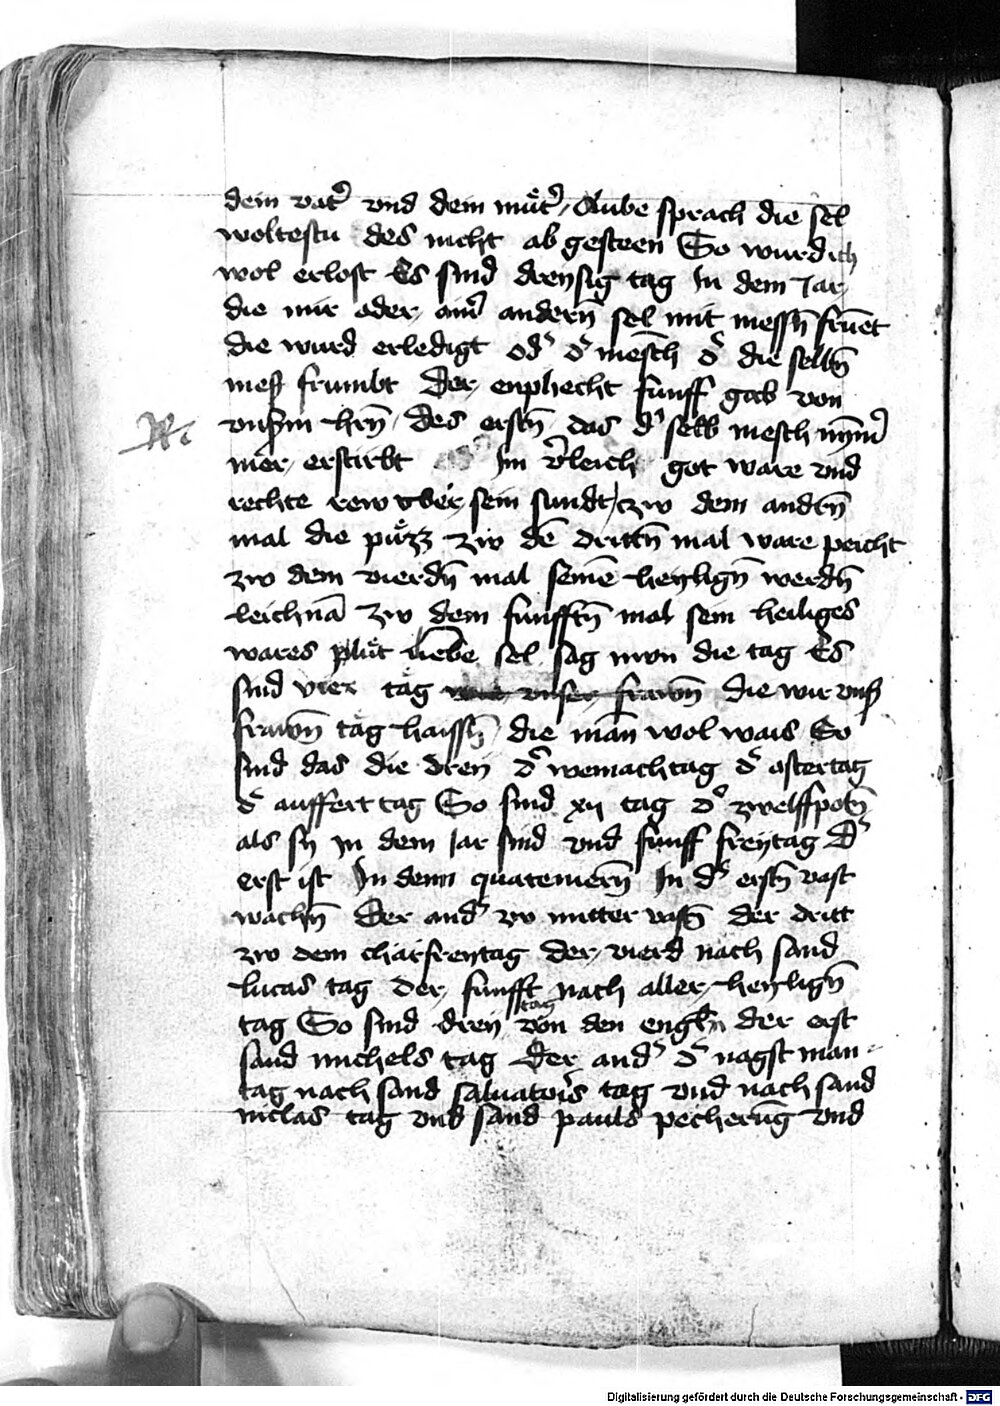 dem vat̾ vnd dem muͤt̾ Aube sprach die sel
woltestu des nicht ab gesteen So wurd ich
wol erlost Es sind dreysig tag In dem Jar
die mir oder ain̾ andern̄ sel mit messn̄ frūet
die wurd erledigt od̾ d̾ mēsch d̾ die selbn̄
mess frumbt Der enphecht funff gab von
vns̾m hrn̄ des erstn̄ das d̾ selb mesch nym̄
mer erstirbt Im v̾leich got ware vnd
rechte rew vber sein sundt / zw dem andrn̄
mal die puͤzz zw dē drittn̄ mal ware peicht
zw dem vierdn̄ mal seinē heylign̄ werdn̄
leichnā zw dem funfftn̄ mal sein heiliges
wares pluͤt liebe sel sag mon die tag Es
sind vier tag vnser frawn̄ die wir vns̾
frawn̄ tag haissn̄ die man wol wais So
sind das die drey d̾ weinachtag d̾ ostertag
d̾ auffert tag So sind xij tag d̾ zwelffpotn̄
als sy in dem Jar sind vnd funff freytag D̾
erst ist In denn quatemern̄ In d̾ erstn̄ vast
wachn̄ Der and̾ zw mitter vastn̄ der dritt
zw dem charfreytag der vierd nach sand
lucas tag der funfft nach aller heylign̄
tag
tag So sind drey von den engln̄ der erst
sand michels tag Der and̾ d̾ nagst man
tag nach sand saluators tag vnd nach sand
niclas tag vnd sand pauls pecherūg vnd
Digitalisierung gefördert durch die Deutsche Forschungsgemeinschaft - DFG